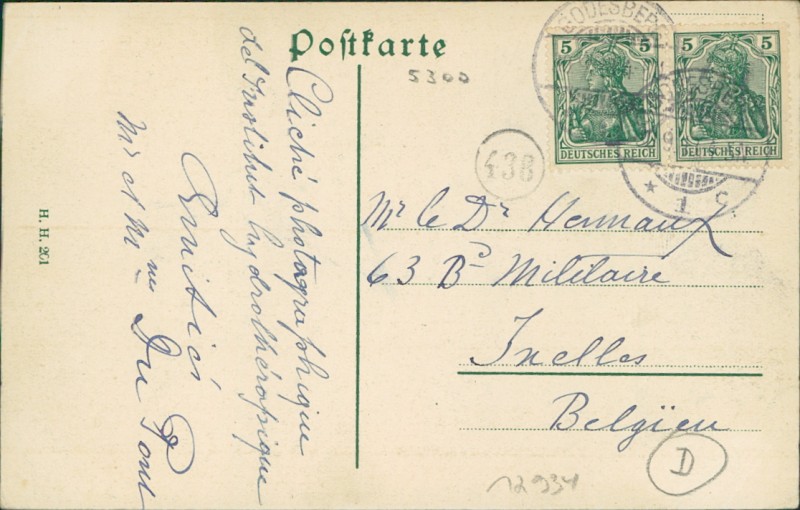 Postkarte
5300
GODESBERG
5 5
DEUTSCHES REICH
5 5
DEUTSCHES REICH
* 1 c
438
Mr le Dr Hermaux
63 Bd Militaire
Ixelles
Belgïen
D
12934
Cliché photographique
de l'Institut hydrothérapique
Amitiés
Mr et Mme Du Pont
H. H. 201